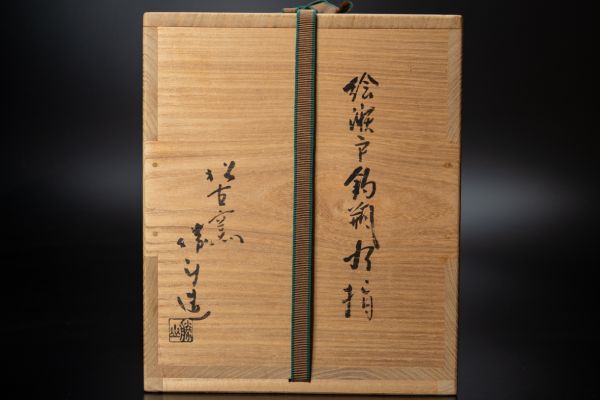 絵瀬戸釣瓶水指
松古窯
造